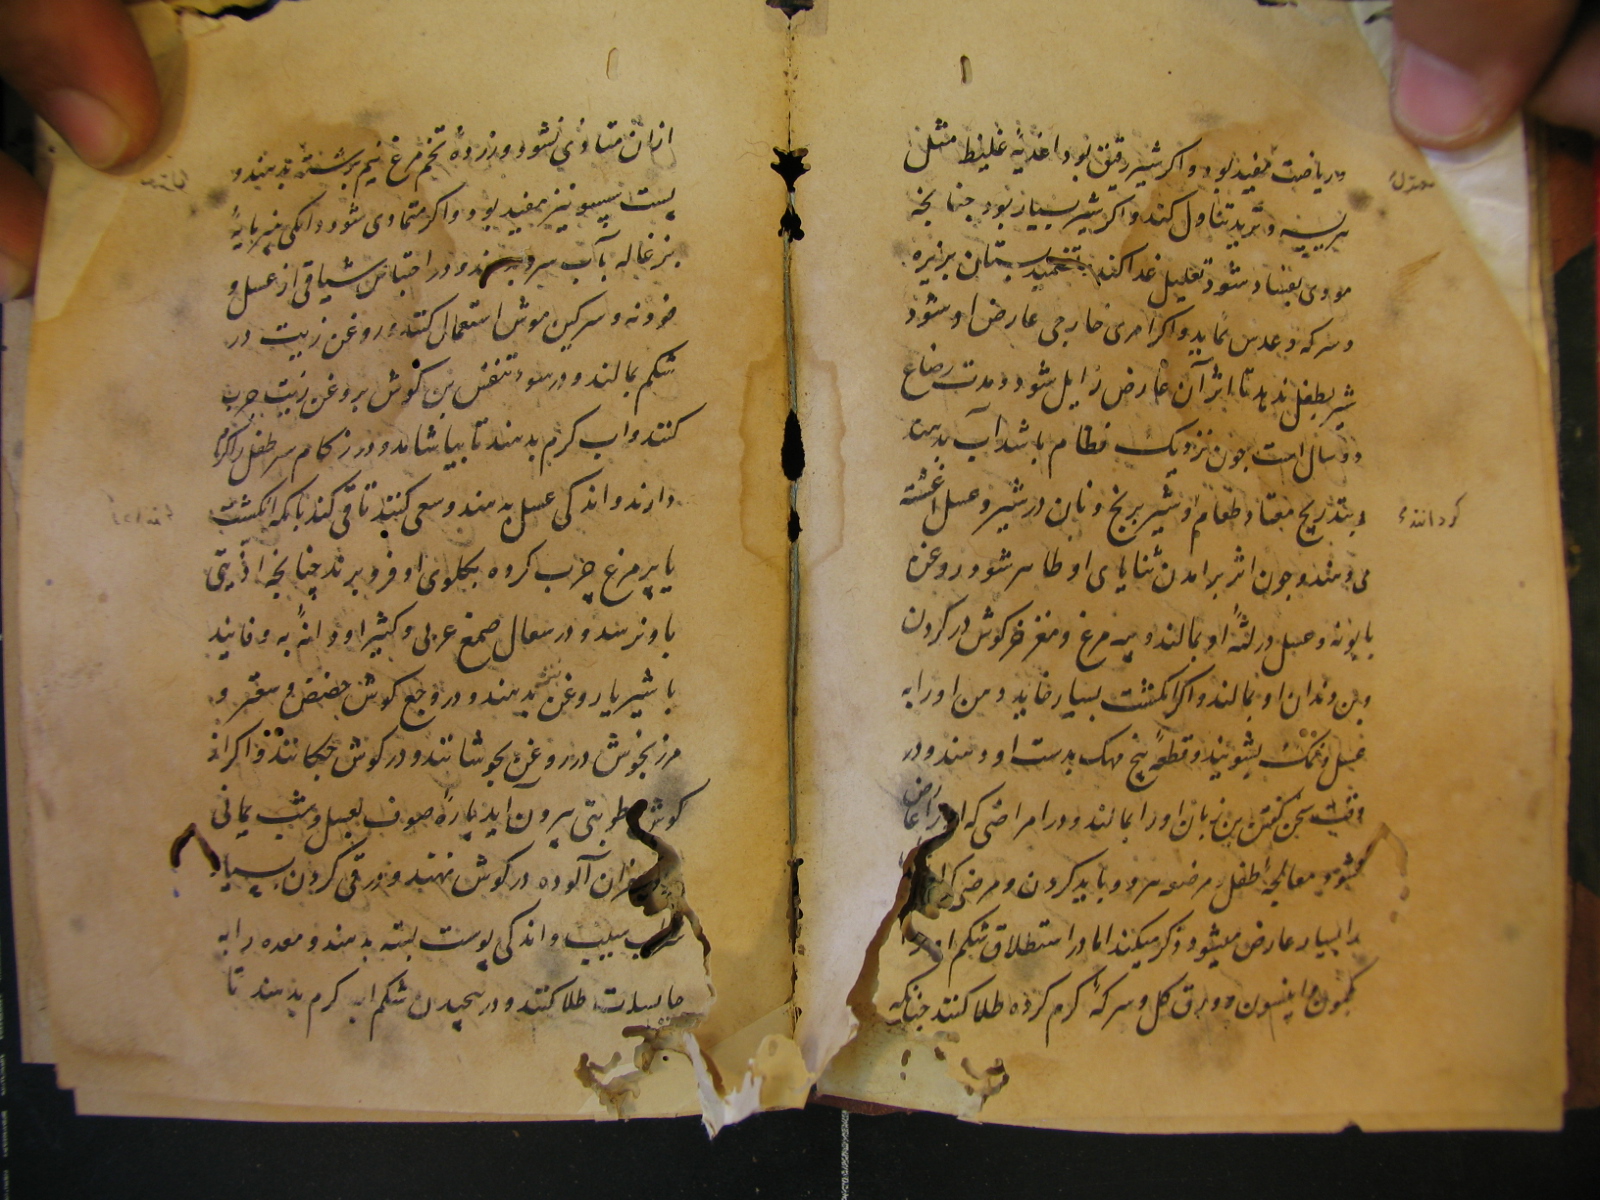 و ریاضت مفید بود و اکر شیر رقیق بود اغذیهٔ غلیظ مثل
هریسه و ثرید تناول کند و اکر شیر بسیار بود چنانجه
مودی بفساد شود تقلیل غدا کند پستان بزیره
و سرکه و عدس نماید و اکر امری خارجی عارض او شود
شیر بطفل ندهد تا اثر آن عارض زایل شود و مدت رضاع
دو سال است جون نزدیک فطام باشد آب بدهند
و بتدریج معتاد طعام او شیر برنج و نان در شیر و عسل اغشته
می دهند و جون اثر برامدن ثنایای او ظاهر شود روغن
بابونه و عسل در لثهٔ او بمالند و پیه مرغ و مغز خرکوش در کردن
و بن دندان او بمالند و اکر انکشت بسیار خاید دهن او را به
عسل و نمک بشویند و قطعهٔ بیخ مهک بدست او دهند و در
وقت سخن کفتن بن زبان او را بمالند و در امراضی که
میشود معالجهٔ طفل مرضعه هر دو باید کردن و مرض
را بسیار عارض میشود ذکر میکنند اما در استطلاق شکم
بکمون و انیسون و ورق کل و سرکهٔ کرم کرده طلا کنند چنانکه
کردانند
از ان متاذی نشود و زردهٔ تخم مرغ نیم برشته بدهند و
پست سیب نیز مفید بود و اکر متمادی شود دانکی پنیر مایهٔ
بزغاله بآب سرد بدهند و در احتباس شیافی از عسل و
فودنه و سرکین موش استعمال کنند و روغن زیت در
شکم بمالند و در سوء تنفس بن کوش بروغن زیت چرب
کنند و اب کرم بدهند تا بیاشامد و در زکام سر طفل را کرم
دارند و اندکی عسل بدهند و سعی کنند تا قی کند بانکه انکشت
یا پر مرغ چرب کرده بکلوی او فرو برند چنانجه اذیتی
باو نرسد و در سعال صمغ عربی و کثیرا و دانهٔ به و فانید
با شیر یا روغن بنفشه بدهند و در وجع کوش حضض و سعتر و
مرزنجوش در روغن بجوشانند و در کوش چکانند و اکر از
کوش رطوبتی بیرون اید پارهٔ صوف بعسل و شب یمانی
و زعفران آلوده در کوش نهند و در قی کردن بسیار
سیب و اندکی پوست پسته بدهند و معده را به
حابسات طلا کنند و در پیچیدن شکم اب کرم بدهند تا